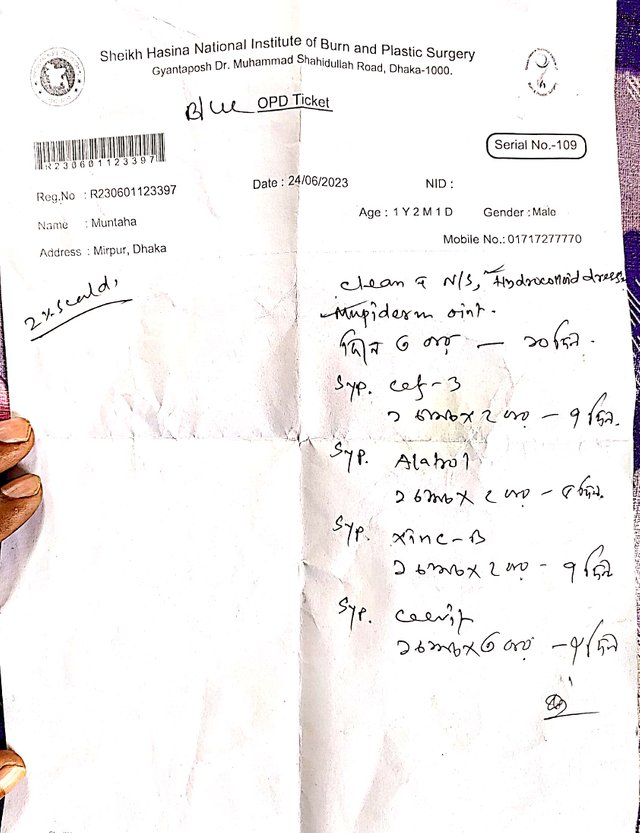 Sheikh Hasina National Institute of Burn and Plastic Surgery
Gyantaposh Dr. Muhammad Shahidullah Road, Dhaka-1000.
Blue OPD Ticket
R230601123397
Serial No.-109
Reg.No : R230601123397
Date : 24/06/2023
NID :
Name : Muntaha
Age : 1 Y 2 M 1 D
Gender : Male
Address : Mirpur, Dhaka
Mobile No.: 01717277770
2% Scald,
clean c̄ N/S,
Mupiderm oint.
দিনে ৩ বার — ১০ দিন.
Syp. Cef-3
১ চামচ × ২ বার - ৭ দিন.
Syp. Alatrol
১ চামচ × ২ বার - দিন.
Syp. Xinc-B
১ চামচ × ২ বার - ৭ দিন
Syp. Ceevit
১ চামচ × ৩ বার - দিন